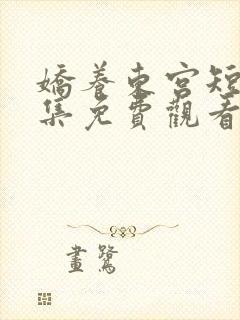 嬌養東宮短
集免費觀看
畫鷺